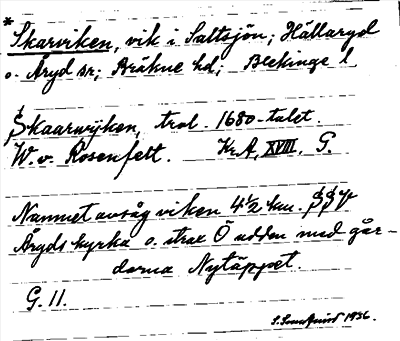 * Skarviken, vik i Saltsjön; Hällaryd
o. Åryd sr; Bräkne hd; Blekinge l
Skaarwijken, trol. 1680-talet.
W. v. Rosenfelt. Kr.A, XVIII, G.
Namnet avsåg viken 4½ km.
Åryds kyrka o. strax Ö udden med går-
darna Nytäppet.
G. 11.
1936.